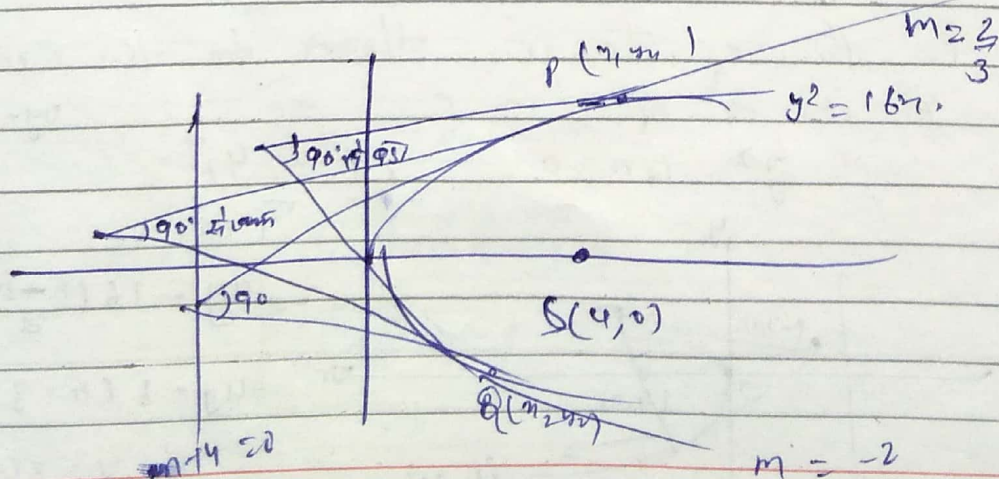 m = 2/3
P(x₁, y₁)
y² = 16x.
90° से
90° से ज्यादा
90
S(4,0)
Q(x₂, y₂)
x+4 = 0
m = -2